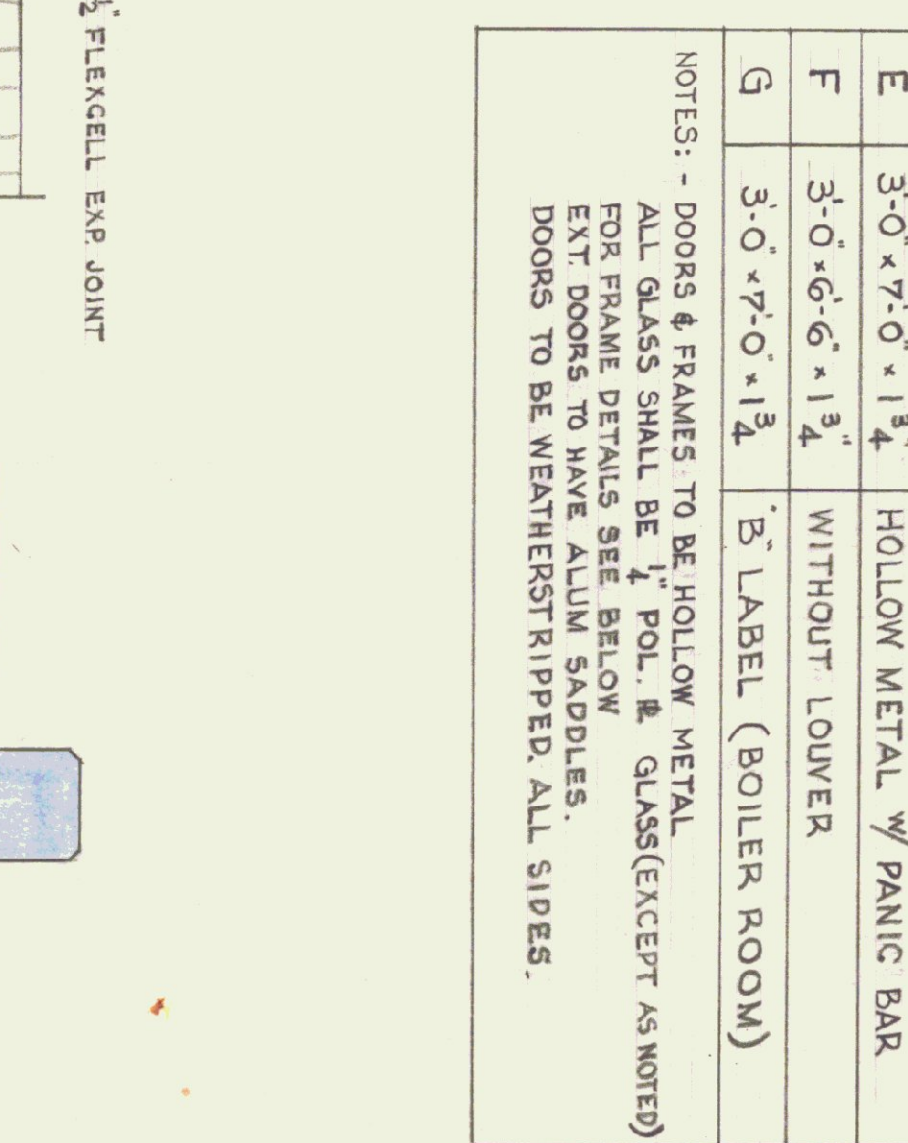 E 3'-0" x 7'-0" x 1 3/4" HOLLOW METAL W/ PANIC BAR
F 3'-0" x 6'-6" x 1 3/4" WITHOUT LOUVER
G 3'-0" x 7'-0" x 1 3/4 "B" LABEL (BOILER ROOM)
NOTES: - DOORS & FRAMES TO BE HOLLOW METAL
ALL GLASS SHALL BE 1/4" POL. PL GLASS (EXCEPT AS NOTED)
FOR FRAME DETAILS SEE BELOW
EXT. DOORS TO HAVE ALUM SADDLES.
DOORS TO BE WEATHERSTRIPPED. ALL SIDES.
1/2" FLEXCELL EXP. JOINT